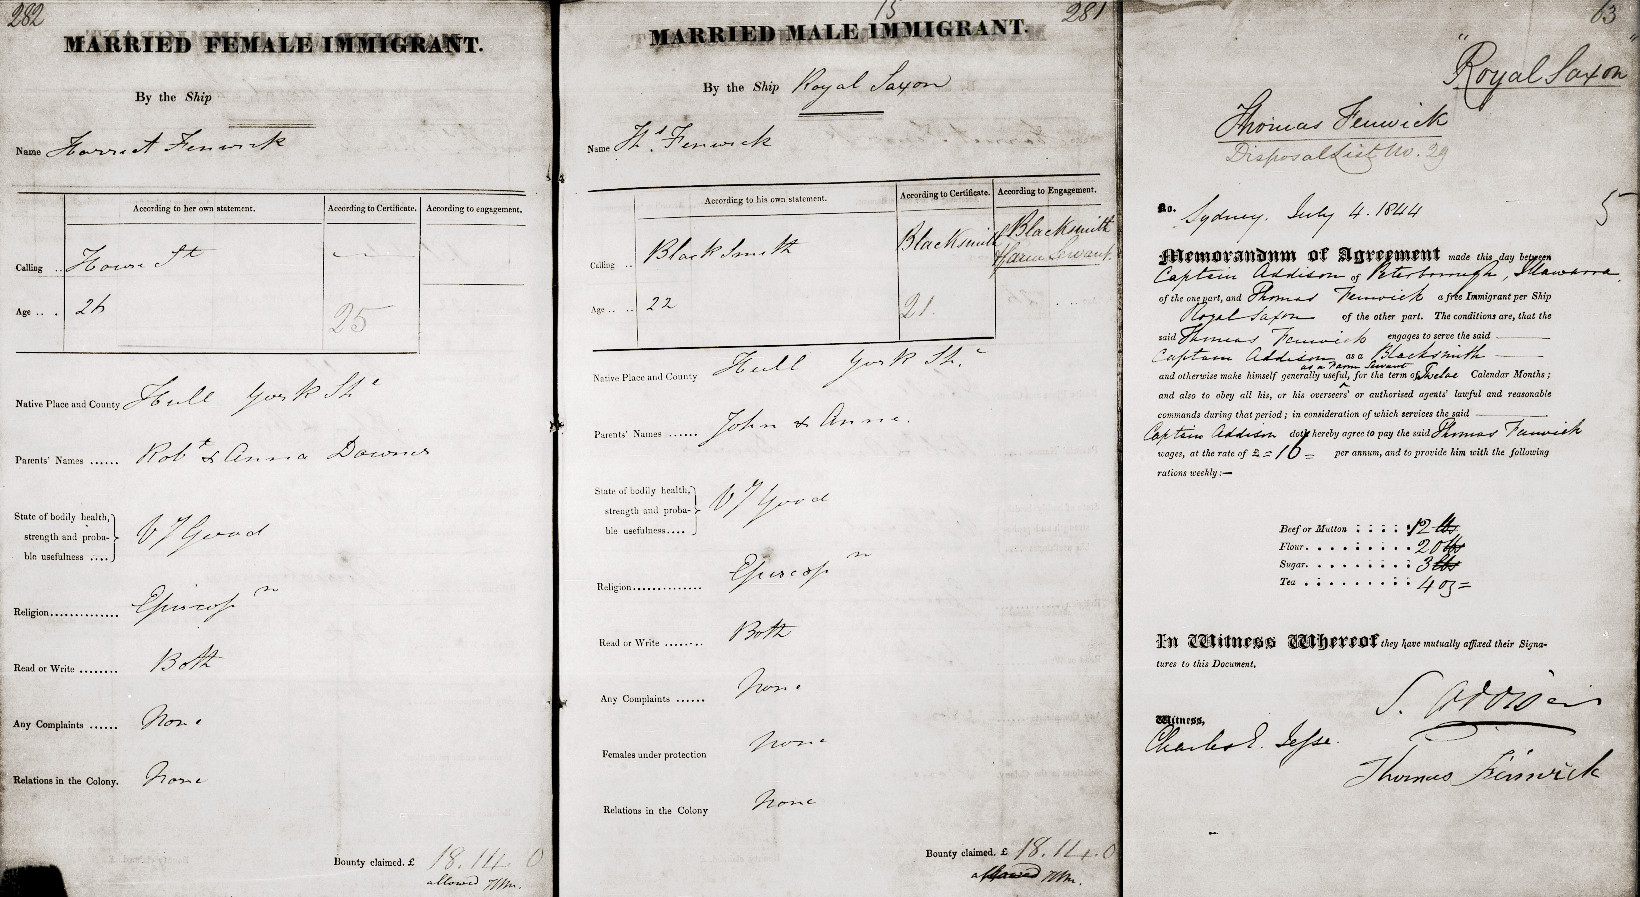 282
MARRIED FEMALE IMMIGRANT.
By the Ship
Name Harriet Fenwick
According to her own statement. According to Certificate. According to engagement.
Calling .. House St
Age .. . 26 25
Native Place and County Hull York Sh^e
Parents' Names ...... Rob^t & Anna Downes
State of bodily health,
strength and proba-
ble usefulness ....
V y Good
Religion.............. Episcop^n
Read or Write ........ Both
Any Complaints ...... None
Relations in the Colony. None
Bounty claimed. £ 18.14.0
allowed
15 281
MARRIED MALE IMMIGRANT.
By the Ship Royal Saxon
Name Th^s. Fenwick
According to his own statement. According to Certificate. According to Engagement.
Calling .. Black Smith Blacksmith Blacksmith
Farm Servant.
Age .. .. 22 21.
Native Place and County Hull York Sh.^e
Parents' Names ...... John & Anne.
State of bodily health,
strength and proba-
ble usefulness....
V y Good
Religion.............. Episcop^n
Read or Write ........ Both
Any Complaints ...... None
Females under protection None
Relations in the Colony None
Bounty claimed. £ 18.14.0
allowed
63
"Royal Saxon"
Thomas Fenwick
Disposal List No. 29
5
No. Sydney. July 4. 1844
Memorandum of Agreement made this day between
Captain Addison of Peterborough, Illawarra,
of the one part, and Thomas Fenwick a free Immigrant per Ship
Royal Saxon of the other part. The conditions are, that the
said Thomas Fenwick engages to serve the said
Captain Addison as a Blacksmith
as a Farm Servant
and otherwise make himself generally useful, for the term of Twelve Calendar Months;
and also to obey all his, or his overseers' or authorised agents' lawful and reasonable
commands during that period; in consideration of which services the said
Captain Addison doth hereby agree to pay the said Thomas Fenwick
wages, at the rate of £=16= per annum, and to provide him with the following
rations weekly:—
Beef or Mutton : : : : : 12 lbs
Flour. . . . . . . . . 20 lbs
Sugar. . . . . . . . . 3 lbs
Tea . . . . . . . . . 4 oz=
In Witness Whereof they have mutually affixed their Signa-
tures to this Document.
S. Addison
Witness,
Charles E.
Thomas Fenwick